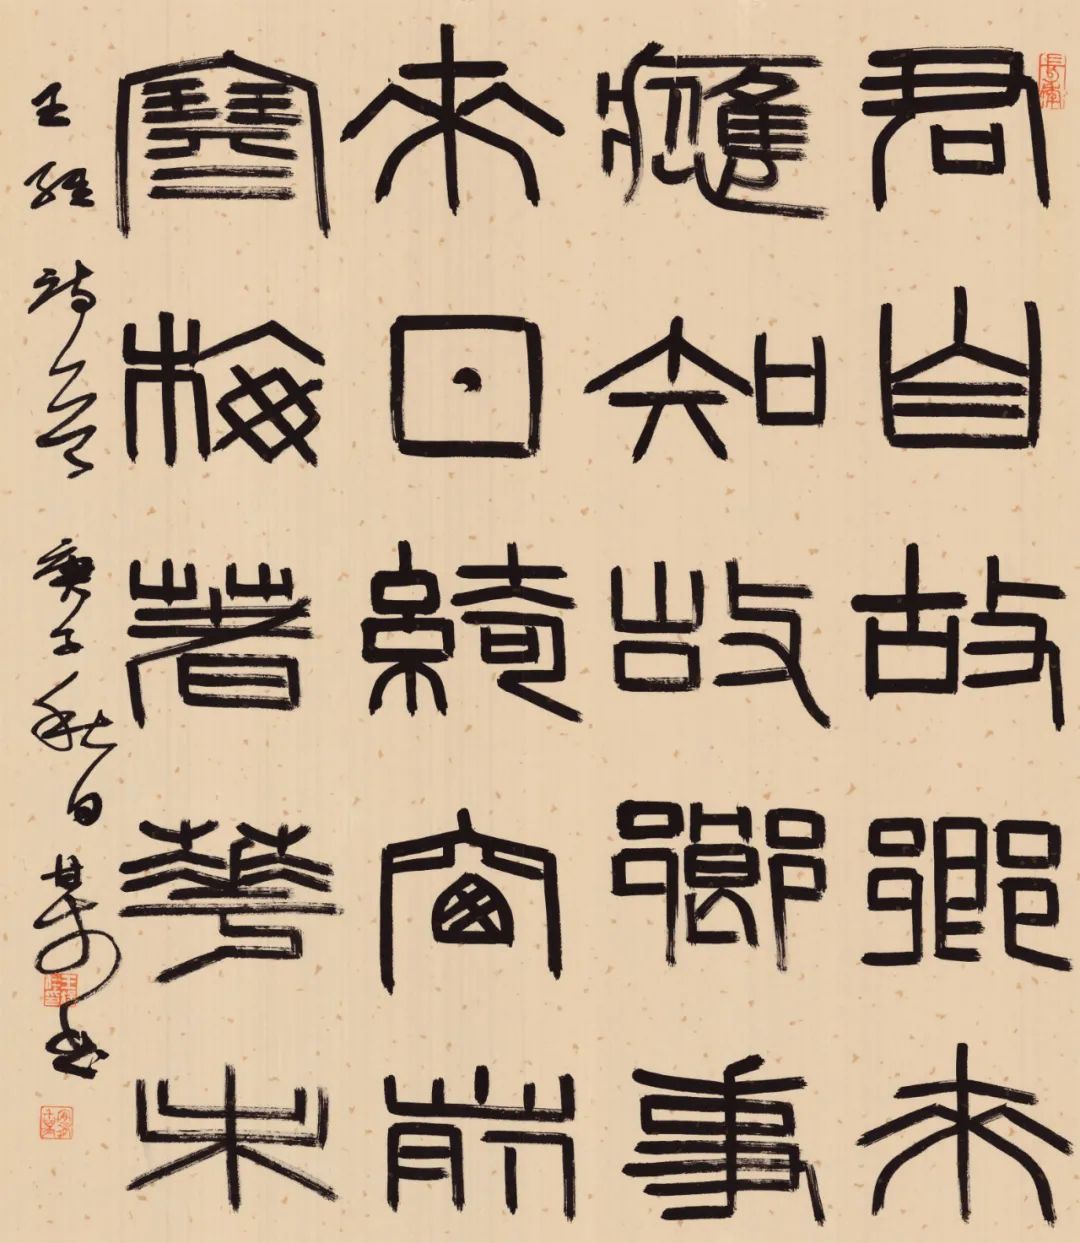 君自故鄉來
應知故鄉事
來日綺窗前
寒梅著華未
王維詩一首 庚子秋日 書